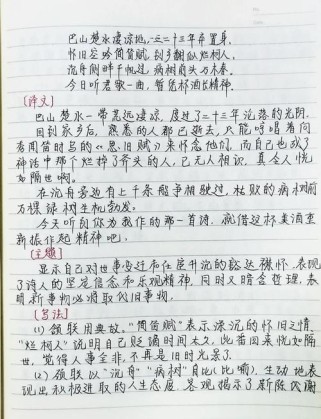 巴山楚水凄凉地,二三十三年弃置身.
怀旧空吟闻笛赋,到乡翻似烂柯人.
沉舟侧畔千帆过,病树前头万木春.
今日听君歌一曲,暂凭杯酒长精神.
[译文]
巴山楚水一带荒远凄凉,度过了二十三年沉落的光阴.
回到家乡后,熟悉的人都已逝去,只能哼唱着向
秀闻笛时写的《思旧赋》来怀念他们,而自己也成了
神话中那个烂掉了斧头的人,已无人相识,真令人恍
如隔世啊。
在沉舟旁边有上千条船争相驶过,枯败的病树前
万棵绿树生机勃发。
今天听到你为我作的那一首诗,就借这杯美酒重
新振作起精神吧.
[主题]
显示自己对世事变迁和仕宦升沉的豁达襟怀,表现
了诗人的坚定信念和乐观精神,同时又暗含哲理,表
明新事物必将取代旧事物.
[写法]
(1)颔联用典故."闻笛赋"表示深沉的怀旧之情.
"烂柯人"说明自己贬谪时间太久,此番回来恍如隔
世,觉得人事全非,不再是旧时光景了.
(2)颈联以"沉舟""病树"自比(比喻),生动地表
现出积极进取的人生态度,客观揭示了新陈代谢